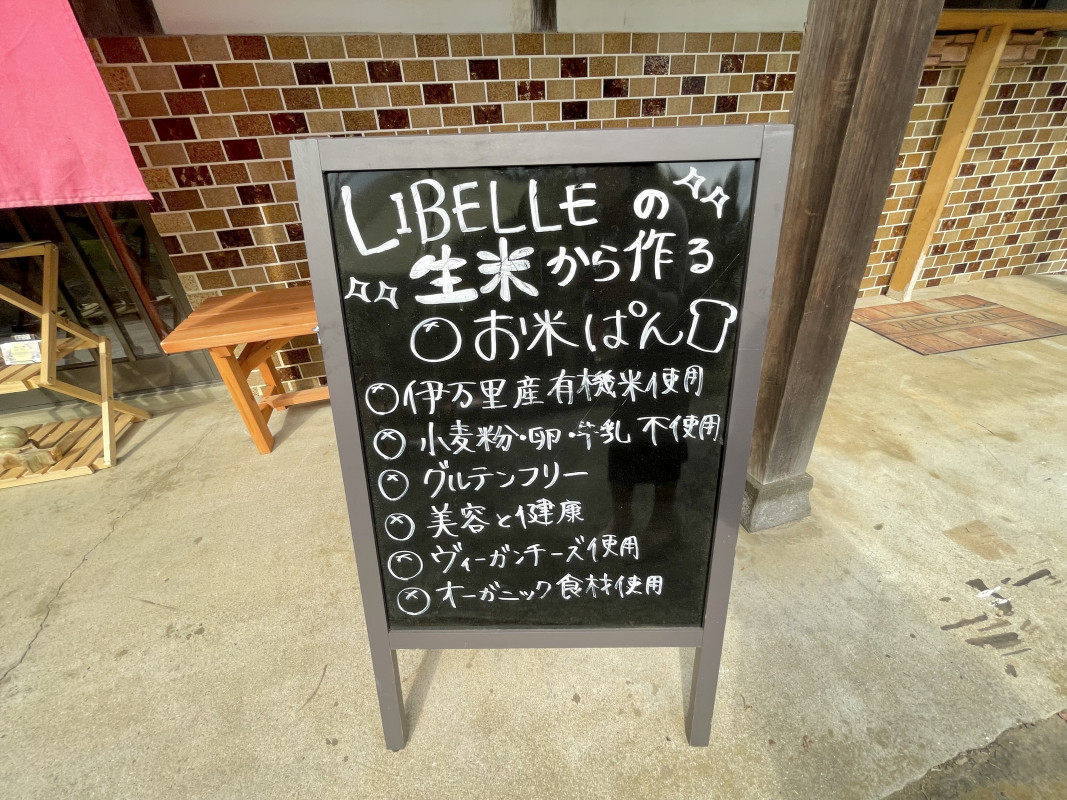 LIBELLE の
生米から作る
お米ぱん
伊万里産有機米使用
小麦粉・卵・牛乳 不使用
グルテンフリー
美容と健康
ヴィーガンチーズ使用
オーガニック食材使用